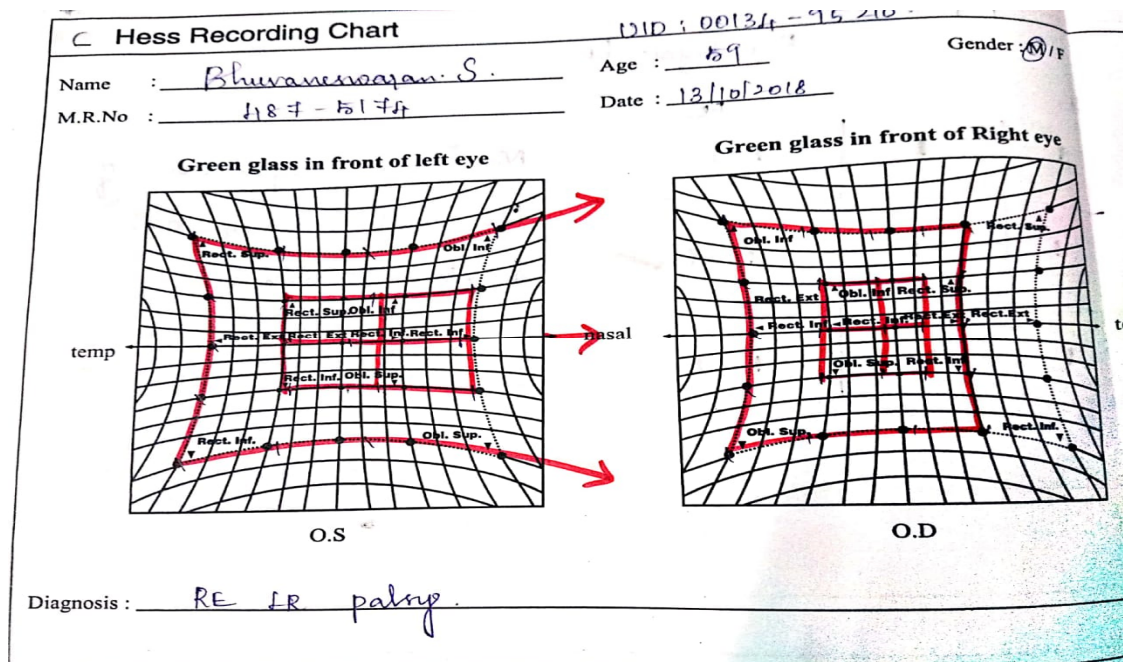 C Hess Recording Chart
UID : 00134 - 95 210
Name : Bhuvaneswaran. S.
Age : 59
Gender : M / F
M.R.No : 487 - 5174
Date : 13/10/2018
Green glass in front of left eye
Green glass in front of Right eye
Rect. Sup. Obl. Inf
Rect. Sup. Obl. Inf
Rect. Ext Rect. Ext Rect. Inf. Rect. Inf.
Rect. Inf. Obl. Sup.
Rect. Inf. Obl. Sup.
temp nasal
O.S
Obl. Inf Rect. Sup.
Rect. Ext Obl. Inf Rect. Sup.
Rect. Inf Rect. Inf Rect. Ext Rect. Ext
Obl. Sup. Rect. Inf
Obl. Sup. Rect. Inf.
O.D
Diagnosis : RE LR palsy.